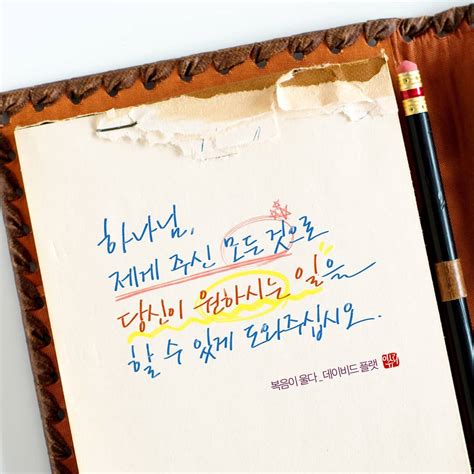 하나님,
제게 주신 모든 것으로
당신이 원하시는 일을
할 수 있게 도와주십시오.
복음이 울다_데이비드 플랫